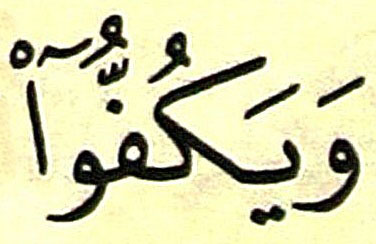 وَيَكُفُّوٓا۟